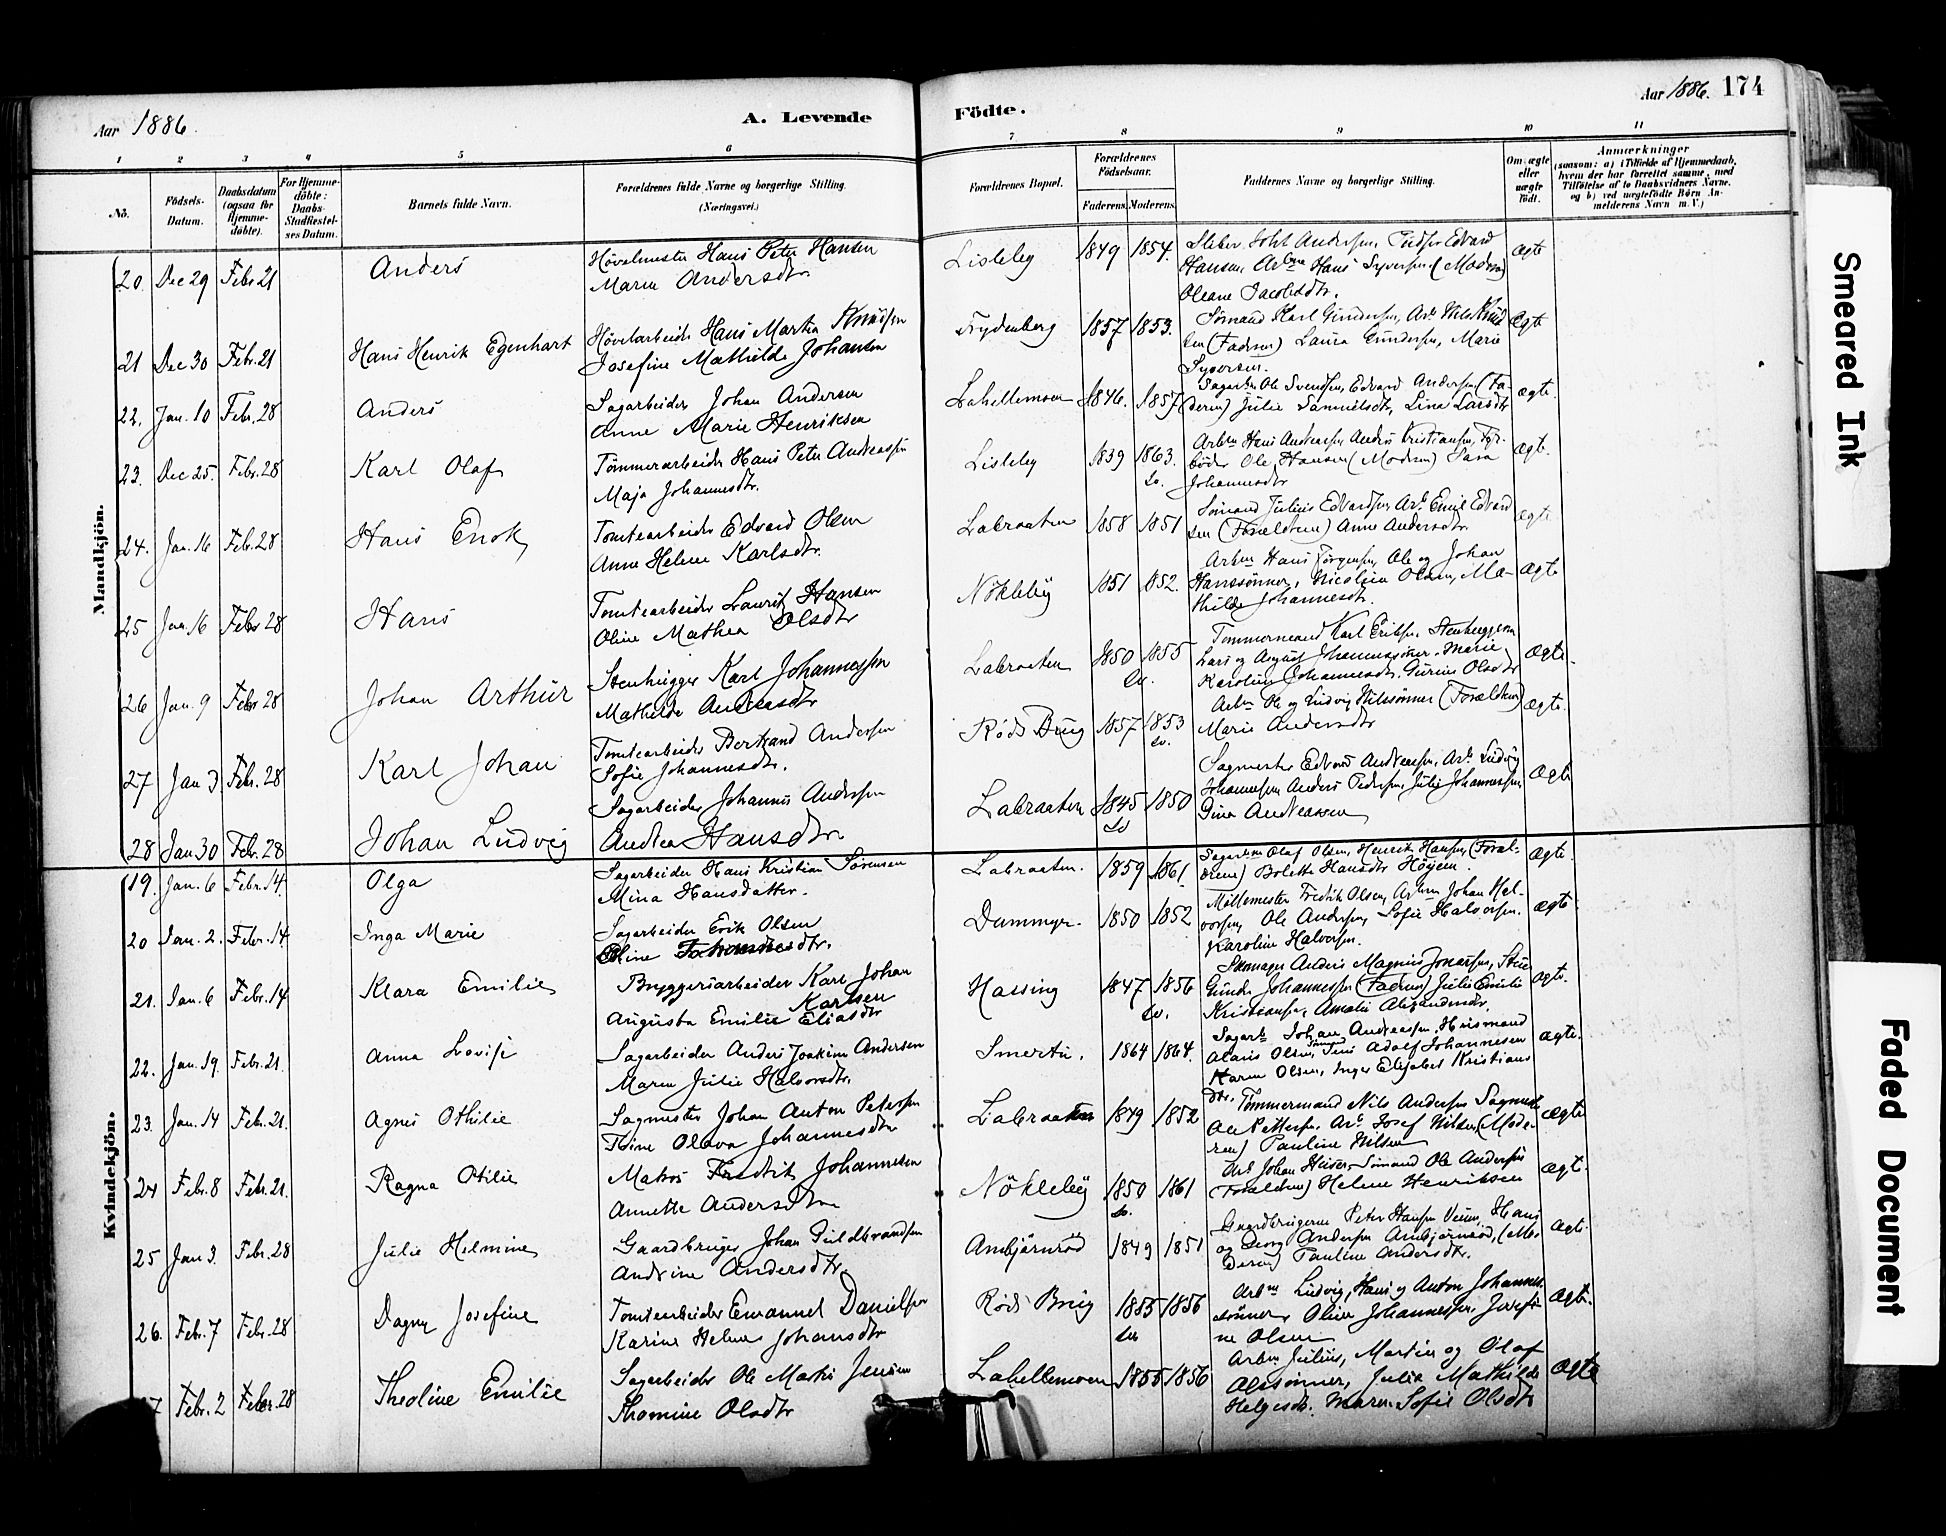 Aar 1886.
A. Levende
Födte.
Aar 1886. 174
1 2 3 4 5 6 7 8 9 10 11
No.
Födsels-Datum.
Daabsdatum (ogsaa for Hjemme-döbte).
For Hjemme-döbte: Daabs-Stadfæstel-ses Datum.
Barnets fulde Navn.
Forældrenes fulde Navne og borgerlige Stilling. (Næringsvei.)
Forældrenes Bopæl.
Forældrenes Födselsaar.
Faderens. Moderens.
Faddernes Navne og borgerlige Stilling.
Om ægte eller uægte födt.
Anmærkninger
(saasom: a) i Tilfælde af Hjemmedaab, hvem der har forrettet samme, med Tilföielse af to Daabsvidners Navne, og b) ved uægtefödte Börn An-melderens Navn m. V.)
Mandkjön.
20. Dec 29 Febr 21 Anders
Hövelmester Hans Peter Hansen
Maren Andersdtr.
Lisleby 1849 1854.
Hansen, Hans Syversen (Moderen)
Oleane Jacobsdtr.
ægte
21 Dec 30 Febr. 21 Hans Henrik Egenhart
Hövelarbeider Hans Martin Knudsen
Josefine Mathilde Johansen
Trydenborg 1857 1853.
Sömand Karl Gundersen, Arb. Nils Knud
sen (Faderen) Laura Gundersen, Marie
Syversen.
Ægte
22. Jan. 10 Febr. 28 Anders
Sagarbeider Johan Andersen
Anne Marie Henriksen
Lahellemoen 1846. 1857
Ole Svendsen, Edvard Andersen (Fa-
deren) Julie Samuelsdtr, Lina Larsdtr
ægte.
23. Dec 25. Febr. 28 Karl Olaf
Tömmerarbeider Hans Peter Andreassen
Maja Johannesdtr.
Lisleby 1839 1863. Sv.
Arbm Hans Andreassen Anders Kristiansen, Fyr-
böder Ole Hansen (Moderen) Sara
Johannesdtr
ægte.
24. Jan. 16 Feb. 28 Hans Enok
Tomtearbeider Edvard Olsen
Anne Helene Karlsdtr.
Labraaten 1858 1851
Sömand Julius Edvardsen Arb. Emil Edvard
sen (Forældrene) Anne Andersdtr.
ægte
25 Jan. 16 Febr 28 Hans
Tomtearbeider Laurits Hansen
Oline Mathea Olsdtr
Nökleby 1851 1852.
Arbm Hans Jörgensen, Ole og Johan
Hanssönner, Nicoline Olsen, Ma-
thilde Johannesdtr.
ægte
26 Jan. 9 Febr 28 Johan Arthur
Stenhugger Karl Johannessen
Mathilde Andersdtr
Labraaten 1850 1855 Sv.
Tömmermand Karl Eriksen, Stenhuggerne
Lars og August Johannessöner. Marie
Karoline Johannesdtr. Gurine Olsdtr
ægte.
27 Jan 3 Febr. 28 Karl Johan
Tomtearbeider Bertrand Andersen
Sofie Johannesdtr.
Röds Brug 1857 1853 Sv.
Arbm Ole og Ludvig Nilssönner (Forældrene)
Marie Andersdtr
ægte.
28 Jan 30 Febr. 28 Johan Ludvig
Sagarbeider Johannes Andersen
Andrea Hansdtr.
Labraaten 1845 1850 Sv
Sagmester Edvard Andreassen, Arb. Ludvig
Johannessen Anders Pedersen, Julie Johannessen,
Gina Andreassen
ægte
Kvindekjön.
19. Jan. 6 Febr. 14. Olga
Sagarbeider Hans Kristian Sörensen
Mina Hansdatter.
Labraaten. 1859 1861.
Olaf Olsen, Henrik Hansen, (Foræl-
drene) Bolette Hansdtr Höyem.
ægte.
20 Jan. 2. Febr. 14 Inga Marie
Sagarbeider Erik Olsen
Oline Johannesdtr.
Dammyr. 1850 1852
Möllemester Fredrik Olsen, Arbm Johan Hal-
vorsen, Ole Andersen, Sofie Halvorsen.
Karoline Halvorsen.
ægte.
21. Jan. 6 Febr. 14 Klara Emilie
Bryggeriarbeider Karl Johan
Karlsen
Augusta Emilie Eliasdtr
Hassing 1847 1856 Sv.
Skomager Anders Magnus Jonassen,
Johannessen (Faderen) Julie Emilie
Kristiansen, Amalie Alexandersdtr.
ægte.
22. Jan. 19. Febr. 21. Anna Lovise
Sagarbeider Anders Joakim Andersen
Maren Julie Halvorsdtr.
Smertu. 1864 1864.
Sagarb. Johan Andreassen, Husmand
Olaus Olsen, Sömand Jens Adolf Johannesen
Karen Olsen, Inger Elisabet Kristians
dtr.
ægte.
23. Jan. 14 Febr. 21. Agnes Othilie
Sagmester Johan Anton Petersen
Trine Olava Johannesdtr
Labraaten 1849 1852
Tömmermand Nils Andersen Sagmester
Ole Pettersen, Arb. Josef Nilsen (Mode-
ren) Pauline Nilsen
ægte
24 Febr. 8 Febr. 21. Ragna Otilie
Matros Fredrik Johannesen
Annette Andersdtr
Nökleby 1850 1861 Sv.
Arb. Johan Sömand Ole Andersen
(Forældrene) Helene Henriksen
ægte.
25 Jan 3. Febr. 28 Julie Helmine
Gaardbruger Johan Guldbrandsen
Andrine Andersdtr.
Ambjörnröd 1849 1851
Gaardbrugerne Peter Hansen Veum, Hans
og Georg Andersen Ambjörnröd, (Mo-
deren) Pauline Andersdtr.
ægte.
26. Febr. 7 Febr. 28 Dagny Josefine
Tomtearbeider Emanuel Danielsen
Karine Helene Johansdtr
Röds Brug 1855 1856 Sv
Arbm Ludvig, Hans og Anton Johannes-
sönner Oline Johannessen, Josefi-
ne Olsen
ægte.
7 Febr. 2 Febr. 28 Theoline Emilie
Sagarbeider Ole Martin Jensen
Thomine Olsdtr
Lahellemoen 1855 1856
Arbm Julius, Martin og Olaf
Olssönner, Julia Mathilde
Helgesdtr. Maren Sofie Olsdtr
ægte
Smeared Ink
Faded Document